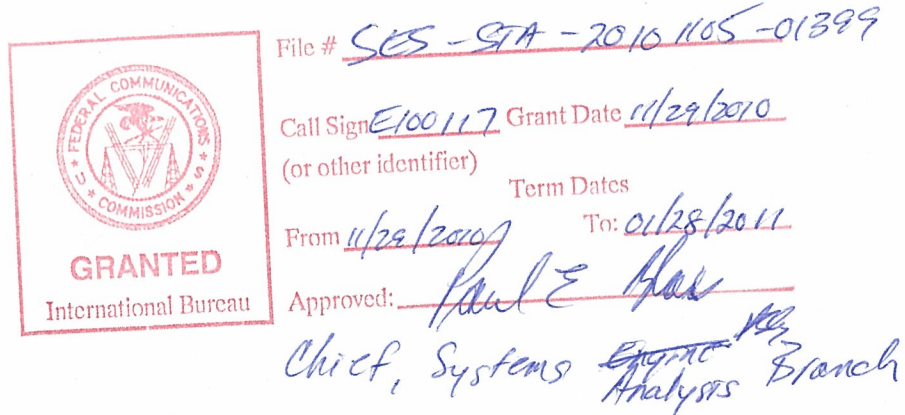 FEDERAL COMMUNICATIONS COMMISSION
U S
GRANTED
International Bureau
File # SES-STA-20101105-01399
Call Sign E100117 Grant Date 11/29/2010
(or other identifier)
Term Dates
From 11/29/2010 To: 01/28/2011
Approved: Paul E
Chief, Systems Engine
Analysis Branch